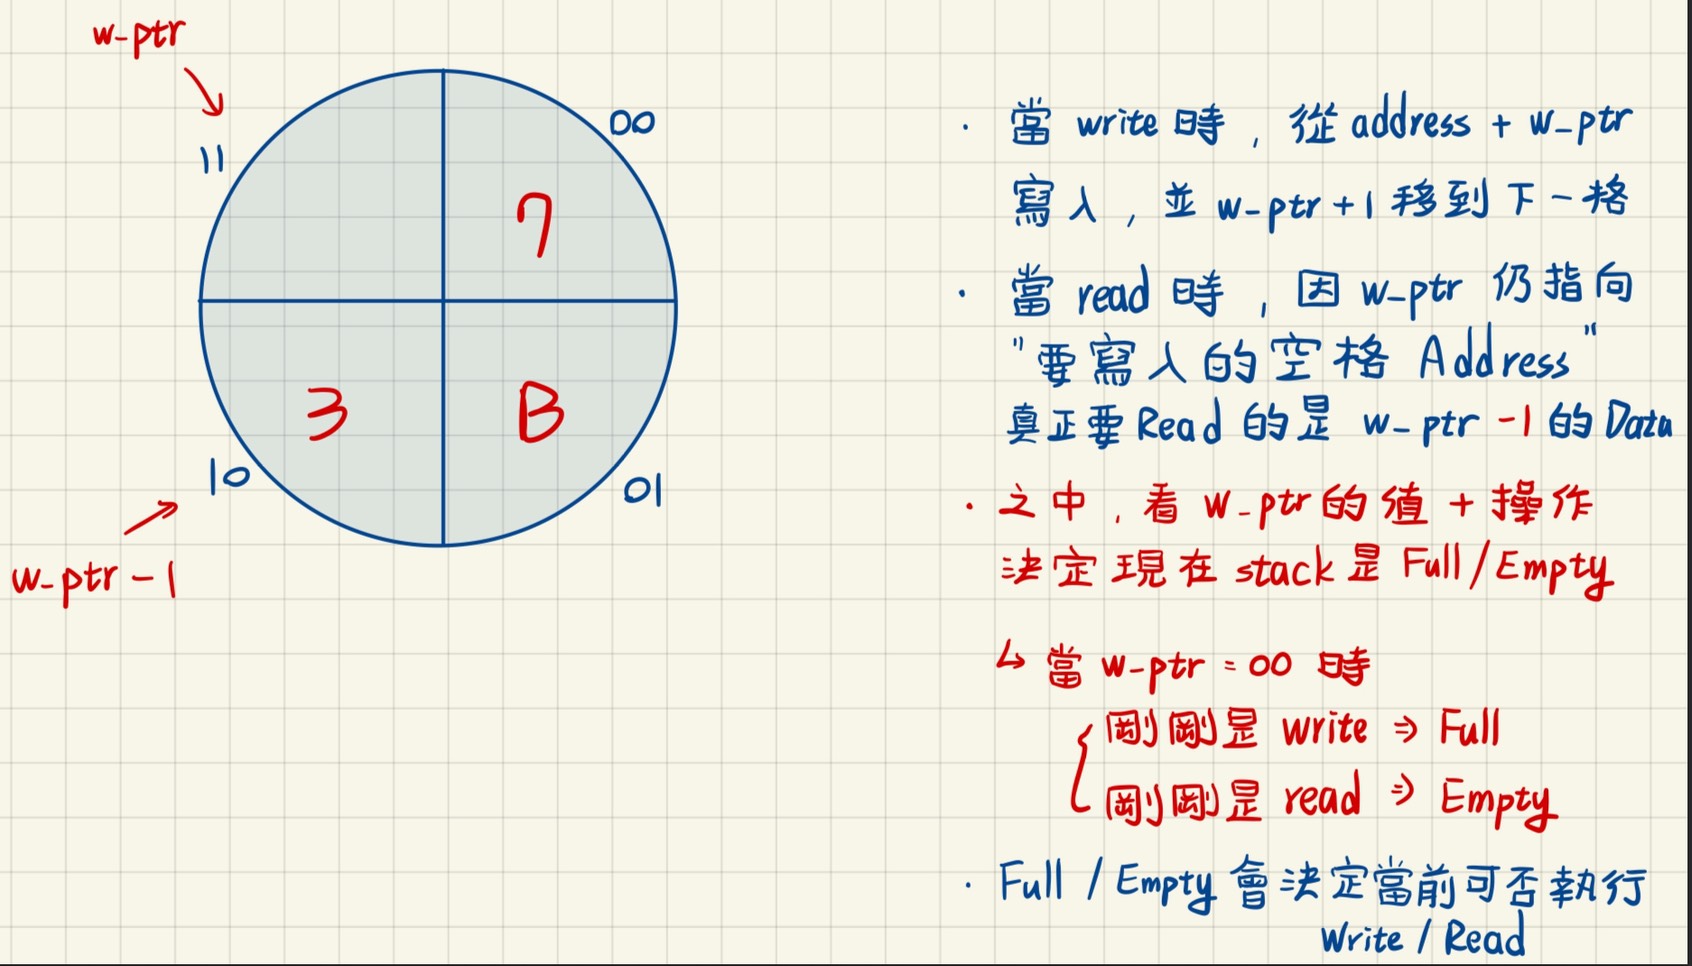 w-ptr
11
00
7
3
B
10
01
w-ptr -1
· 當 write 時 , 從 address + w-ptr
寫入 , 並 w-ptr +1 移到下一格
· 當 read 時 , 因 w-ptr 仍指向
"要寫入的空格 Address"
真正要 Read 的是 w-ptr -1 的 Data
· 之中 , 看 w-ptr 的值 + 操作
決定現在 stack 是 Full/Empty
↳ 當 w-ptr = 00 時
剛剛是 write ⇒ Full
剛剛是 read ⇒ Empty
· Full / Empty 會決定當前可否執行
Write / Read